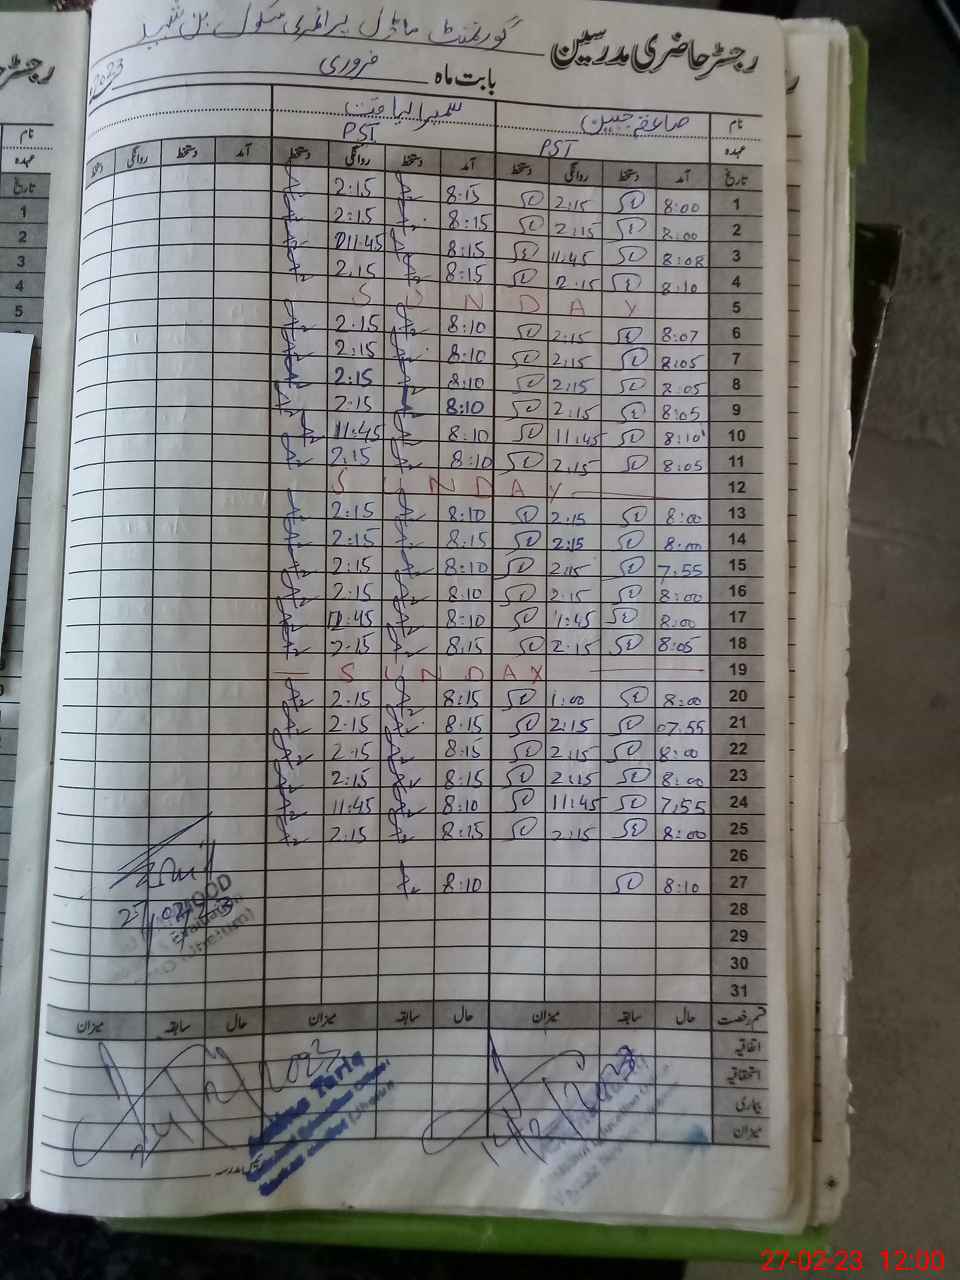 رجسٹر حاضری مدرسین گورنمنٹ ماڈل پرائمری سکول
بابت ماہ فروری 2023
نام صاعقہ جبین سمیرا لیاقت
عہدہ PST PST
تاریخ آمد دستخط روانگی دستخط آمد دستخط روانگی دستخط آمد دستخط روانگی دستخط
1 8:00 2:15 8:15 2:15
2 8:00 2:15 8:15 2:15
3 8:08 11:45 8:15 11:45
4 8:10 2:15 8:15 2:15
5 SUNDAY
6 8:07 2:15 8:10 2:15
7 8:05 2:15 8:10 2:15
8 8:05 2:15 8:10 2:15
9 8:05 2:15 8:10 2:15
10 8:10 11:45 8:10 11:45
11 8:05 2:15 8:10 2:15
12 SUNDAY
13 8:00 2:15 8:10 2:15
14 8:00 2:15 8:15 2:15
15 7:55 2:15 8:10 2:15
16 8:00 2:15 8:10 2:15
17 8:00 1:45 8:10 :45
18 8:05 2:15 8:15 2:15
19 SUNDAY
20 8:00 1:00 8:15 2:15
21 07:55 2:15 8:15 2:15
22 8:00 2:15 8:15 2:15
23 8:00 2:15 8:15 2:15
24 7:55 11:45 8:10 11:45
25 8:00 2:15 8:15 2:15
26
27 8:10 8:10
28
29
30
31
قسم رخصت حال سابقہ میزان حال سابقہ میزان حال سابقہ میزان
اتفاقیہ
استحقاقیہ
بیماری
میزان
27-02-23 12:00